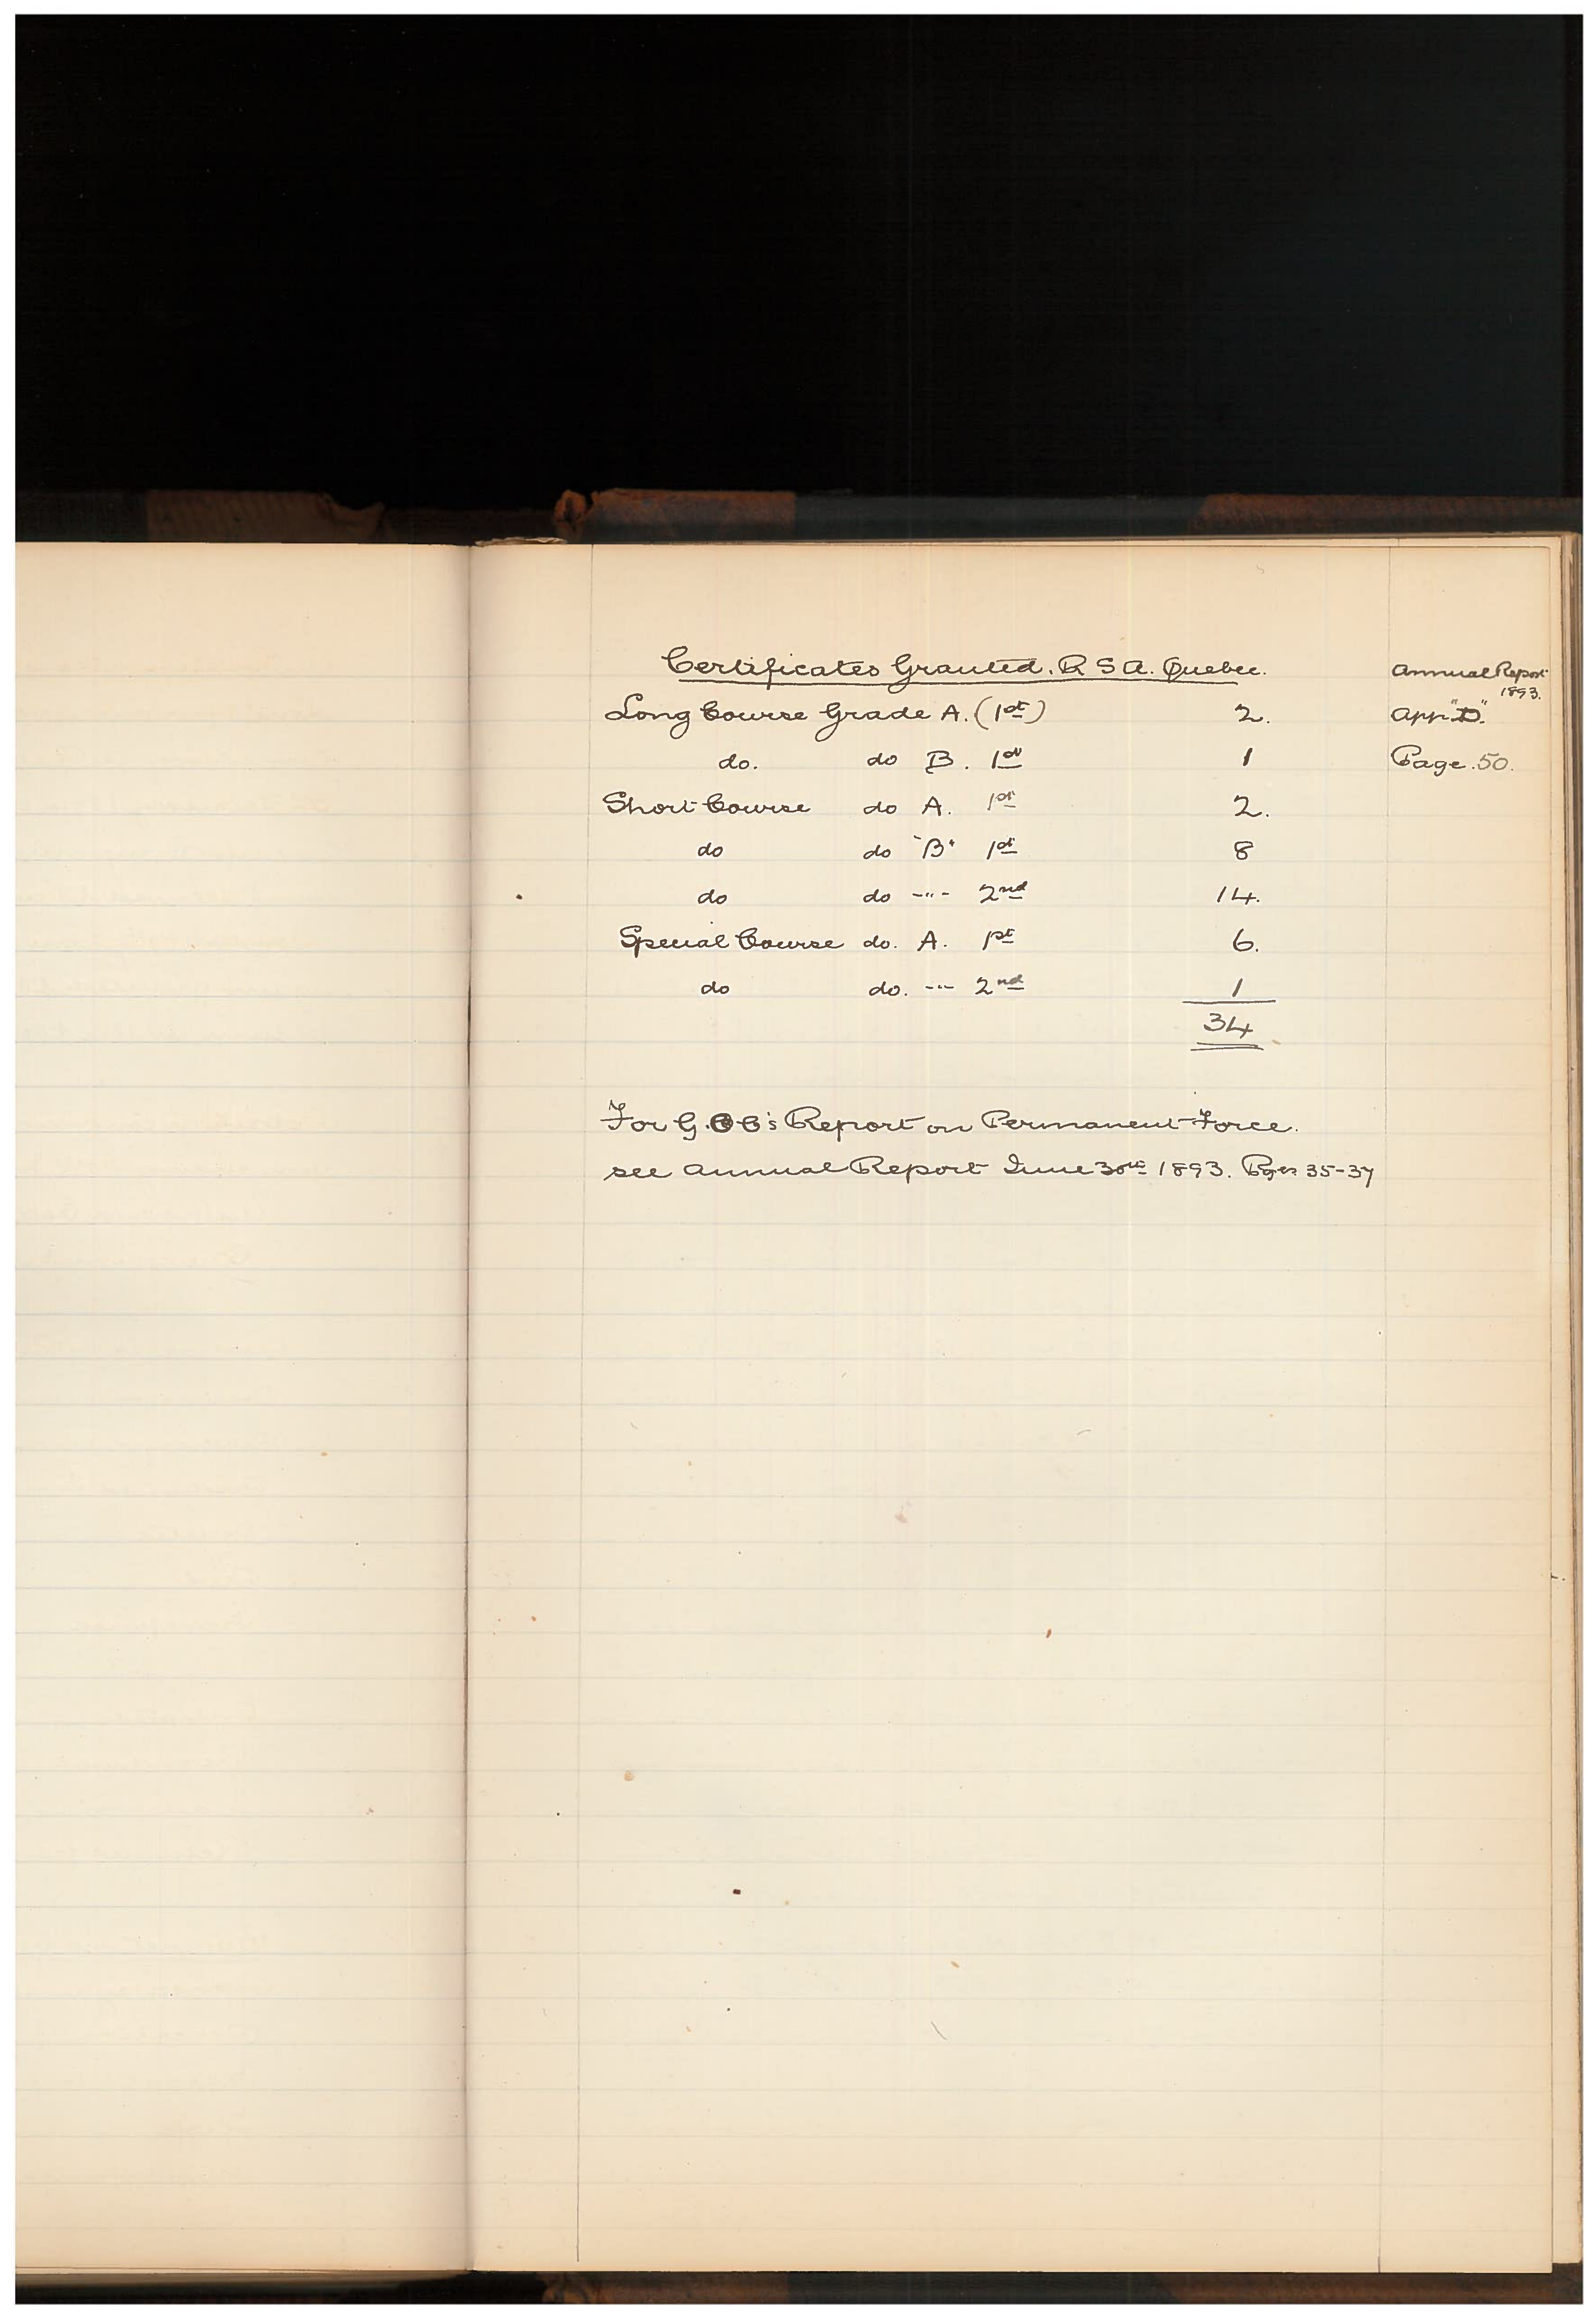 Certificates Granted. R S A. Quebec.
Annual Report
1893.
Long Course Grade A. (1st) 2.
App "D".
do. do B. 1st 1
Page. 50.
Short Course do A. 1st 2.
do do "B" 1st 8
do do -"- 2nd 14.
Special Course do. A. 1st 6.
do do. -"- 2nd 1
34
For G.O C's Report on Permanent Force.
see Annual Report June 30th 1893. Pges 35-37